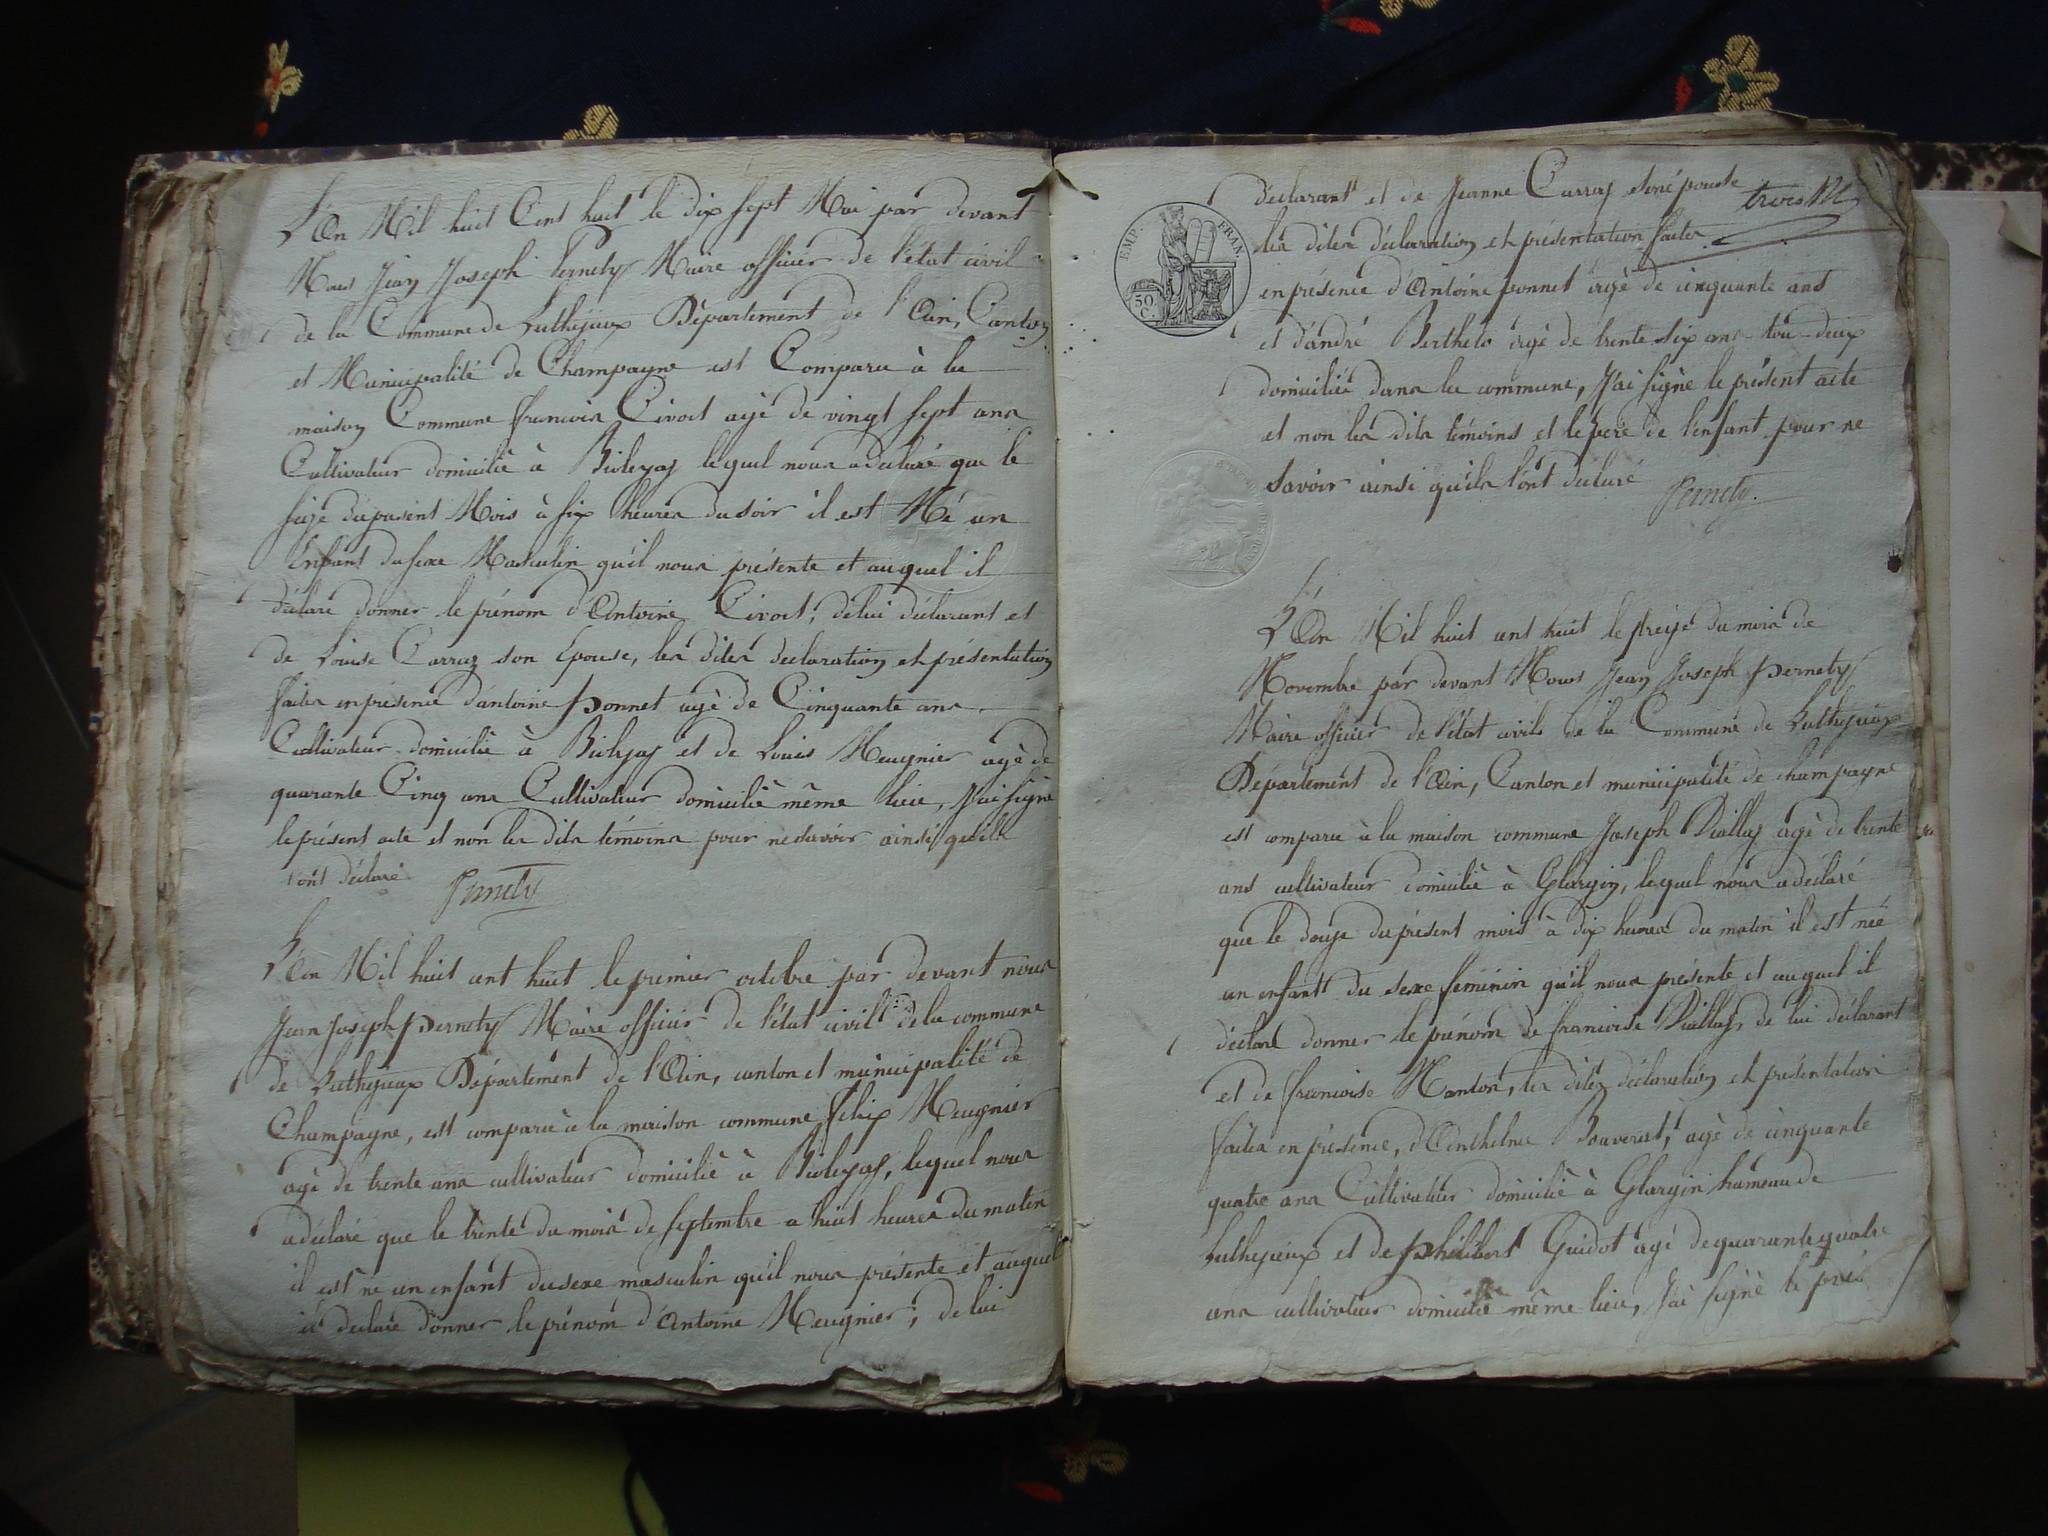 L'An Mil huit Cent huit le dix sept Mai par devant
Nous Jean Joseph Pernety Maire officier de l'état civil
de la Commune de Luthezieux Département de l'Ain, Canton
et Municipalité de Champagne est Comparu à la
maison Commune francois Civoct agé de vingt sept ans
Cultivateur domicilié à Bioleyas lequel nous a declaré que le
seize du present Mois à six heures du soir il est Né un
Enfant du sexe Masculin qu'il nous présente et auquel il
déclare donner le prénom d'Antoine Civoct, de lui déclarant et
de Louise Carraz son Epouse, les dites declaration et présentation
faites en présence d'antoine ponnet agé de Cinquante ans
Cultivateur domicilié à Bioleyas et de Louis Meugnier agé de
quarante Cinq ans Cultivateur domicilié même lieu, J'ai signé
le présent acte et non les dits témoins pour ne savoir ainsi qu'ils
l'ont déclaré Pernety
L'An Mil huit cent huit le premier octobre par devant nous
Jean Joseph Pernety Maire officier de l'état civil de la commune
de Luthezieux Département de l'Ain, canton et municipalité de
Champagne, est comparu à la maison commune felix Meugnier
agé de trente ans cultivateur domicilié à Bioleyas, lequel nous
a déclaré que le trente du mois de septembre a huit heures du matin
il est né un enfant du sexe masculin qu'il nous présente et auquel
il declare donner le prénom d'Antoine Meugnier; de lui
déclarant et de Jeanne Carraz son épouse
les dites déclaration et présentation faites
en présence d'Antoine ponnet agé de cinquante ans
et d'andré Berthelo agé de trente six ans tou deux
domicilié dans la commune, J'ai signé le présent acte
et non les dits témoins et le pere de l'enfant pour ne
savoir ainsi qu'ils l'ont declaré Pernety.
EMP. FRAN.
50 C.
L'An Mil huit cent huit le treize du mois de
Novembre par devant Nous Jean Joseph Pernety
Maire officier de l'état civil de la Commune de Luthezieux
Département de l'Ain, Canton et municipalité de champagne
est comparu à la maison commune Joseph Viallaz agé de trente
ans cultivateur domicilié à Glargin, lequel nous a déclaré
que le douze du présent mois à dix heures du matin il est née
un enfant du sexe féminin qu'il nous présente et auquel il
déclare donner le prénom de francoise Viallaz, de lui déclarant
et de francoise Manton, les dites déclaration et présentation
faites en présence, d'Anthelme Bouverat, agé de cinquante
quatre ans Cultivateur domicilié à Glargin hameau de
Luthezieux et de philibert Guidot agé de quarante quatre
ans cultivateur domicilié même lieu, J'ai signé le pres